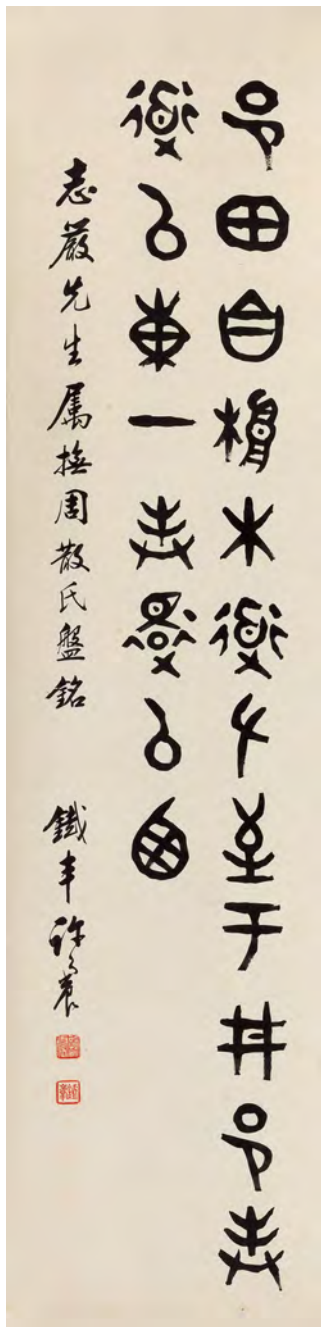 邑田自桹木道左至于井邑封
道以東一封還以西
志嚴先生屬撫周散氏盤銘 鐵丰許